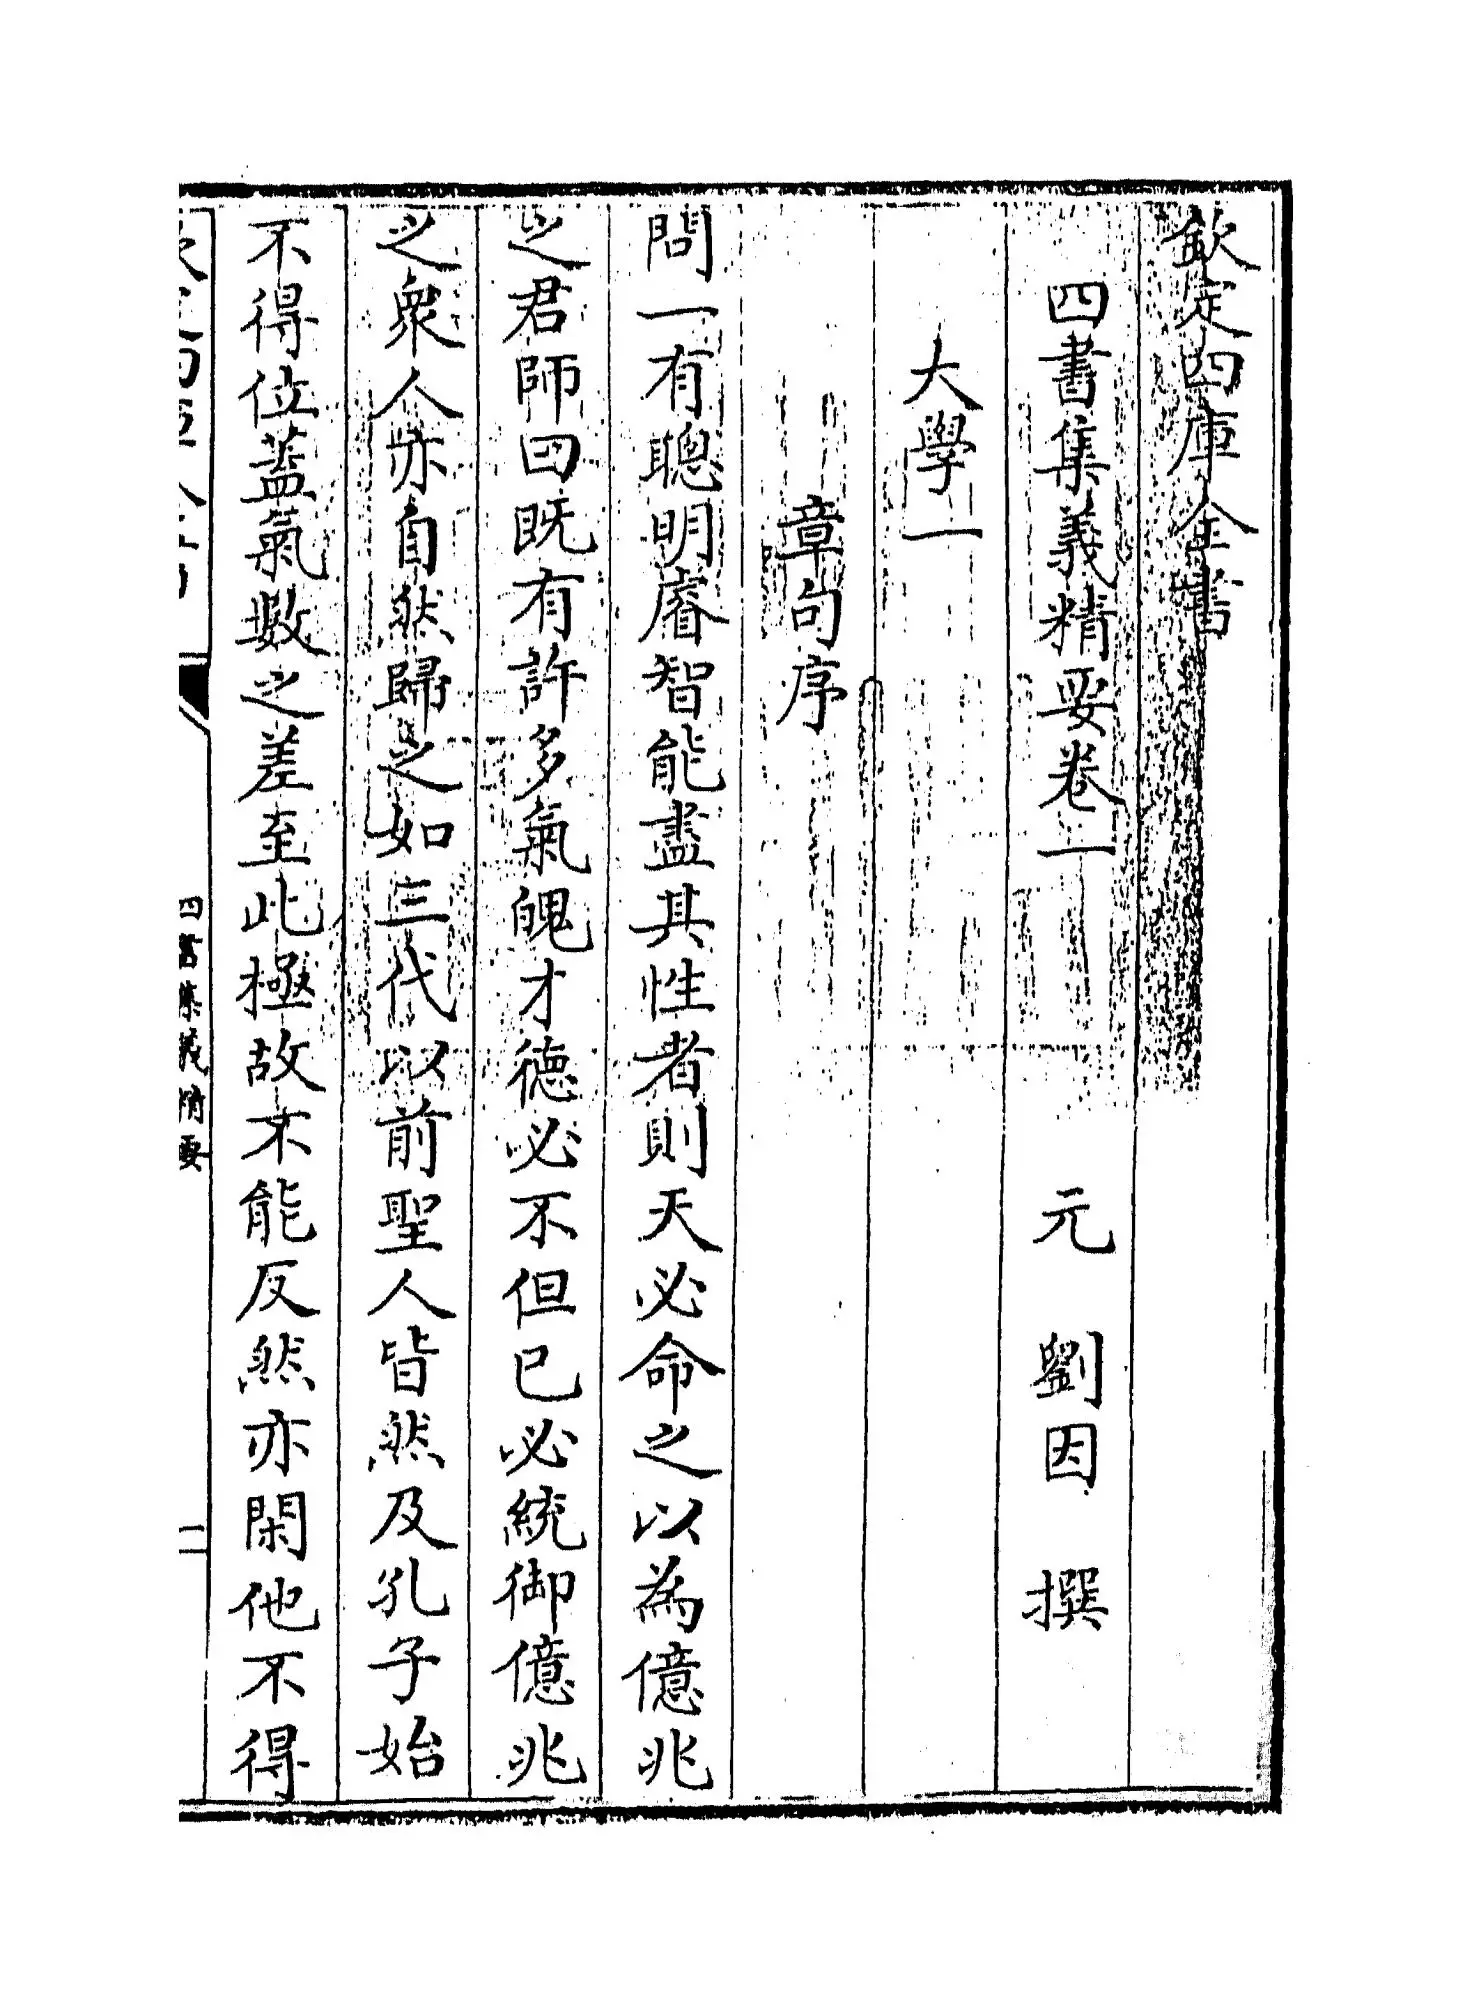 欽定四庫全書
四書集義精要卷一 元 劉因 撰
大學一
章句序
問一有聰明睿智能盡其性者則天必命之以為億兆
之君師曰既有許多氣魄才德必不但已必統御億兆
之衆人亦自然歸之如三代以前聖人皆然及孔子始
不得位蓋氣數之差至此極故不能反然亦閑他不得
四書集義精要
一